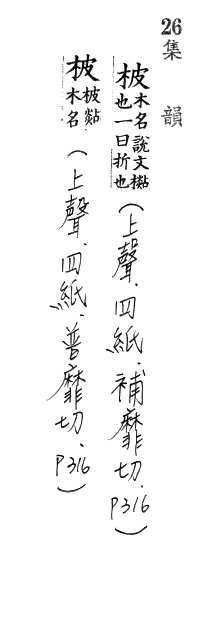 26
集韻
柀木名說文㯕也一曰折也(上聲.四紙.補靡切.P316)
柀柀㸃木名(上聲.四紙.普靡切.P316)